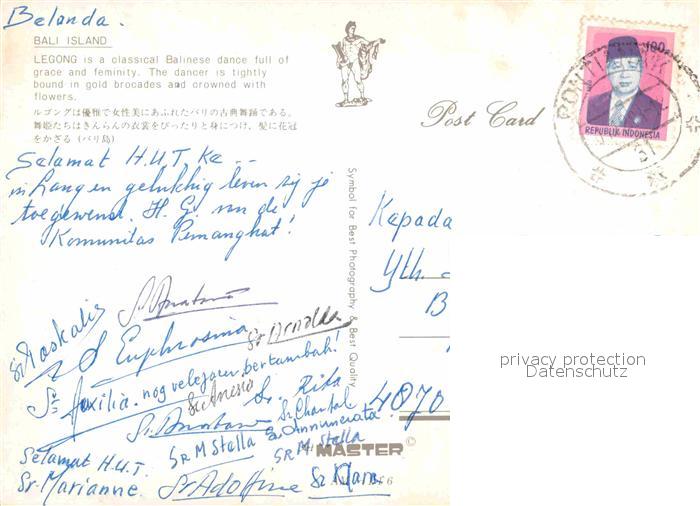 Belanda.
BALI ISLAND
LEGONG is a classical Balinese dance full of
grace and feminity. The dancer is tightly
bound in gold brocades and crowned with
flowers.
ルゴングは優雅で女性美にあふれたバリの古典舞踊である。
舞姫たちはきんらんの衣裳をぴったりと身につけ、髪に花冠
をかざる (バリ島)
Post Card
100
REPUBLIK INDONESIA
Selamat H.U.T. ke --
'n Lang en gelukkig leven zij je
toegewenst. H. G. van de
Komunitas Pemangkat!
Symbol for Best Photography & Best Quality
Kepada
Yth.
B
4070
privacy protection
Datenschutz
Sr Paskalis
S Euphrosina
Sr Arnolda
Sr Auxilia. nog vele jaren bertambah!
Sr. Rita
Sr Chantal
Sr Annunciata
Sr M Stella
Sr M Stella
MASTER©
Selamat H.U.T.
Sr. Marianne.
Sr Adolfine
Sr Klara